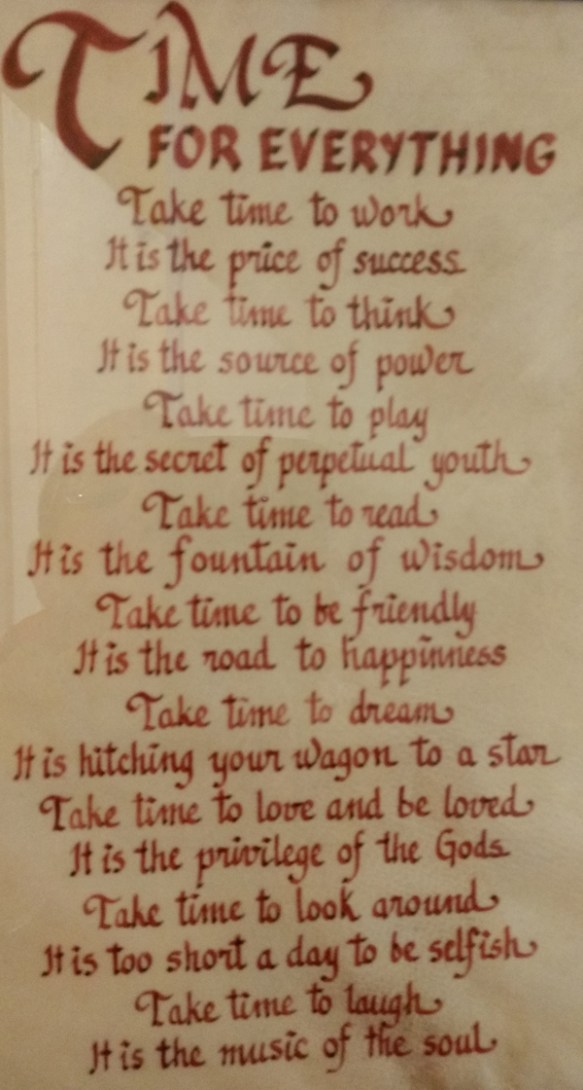 TIME
FOR EVERYTHING
Take time to work
It is the price of success
Take time to think
It is the source of power
Take time to play
It is the secret of perpetual youth
Take time to read
It is the fountain of wisdom
Take time to be friendly
It is the road to happinness
Take time to dream
It is hitching your wagon to a star
Take time to love and be loved
It is the privilege of the Gods
Take time to look around
It is too short a day to be selfish
Take time to laugh
It is the music of the soul